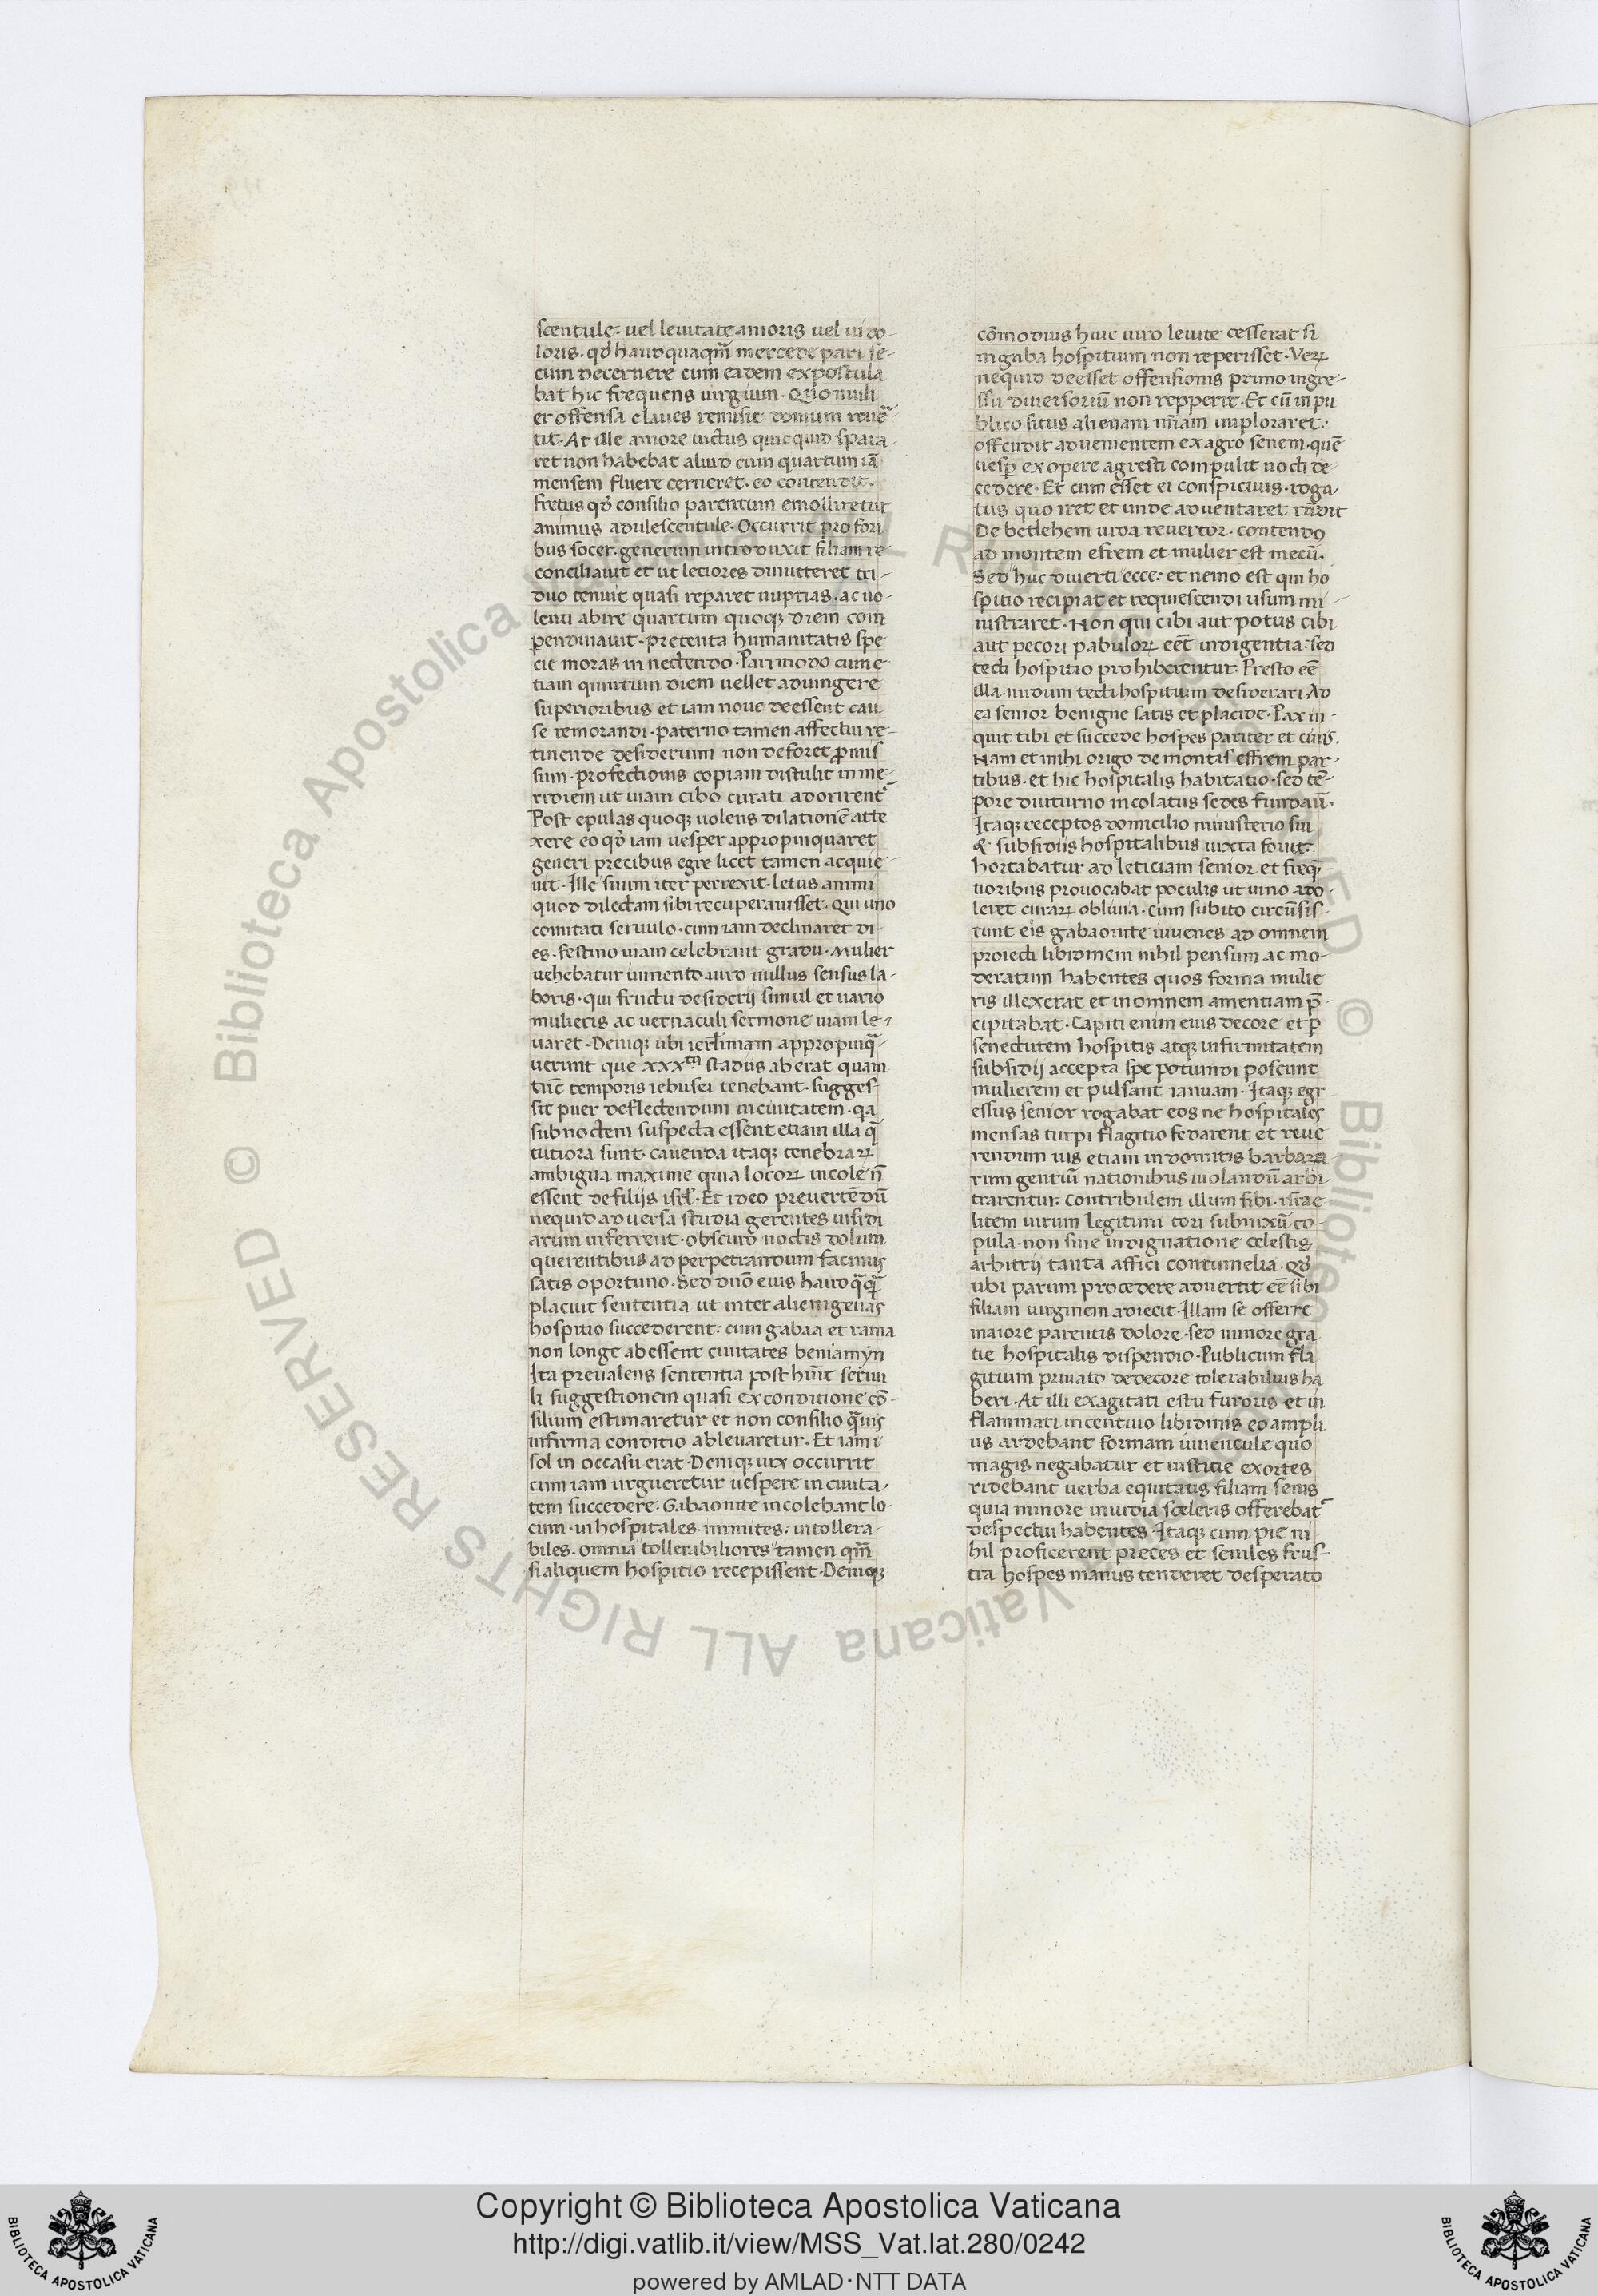 scentule: uel leuitate amoris uel ui do-
loris. qd̛ haudquaqm̃ mercede pari se-
cum decernere cum eadem expostula
bat hic frequens uirgium. Quo muli
er offensa claues remisit domum reuer̃
tit. At ille amore uictus quicquid spara
ret non habebat aliud cum quartum iã
mensem fluere cerneret. eo contendit.
fretus qd̛ consilio parentum emolliretur
animus adulescentule. Occurrit pro fori
bus socer. generum introduxit filiam re
conciliauit et ut letiores dimitteret tri-
duo tenuit quasi reparet nuptias. ac uo-
lenti abire quartum quoqꝫ diem com
pendinauit. pretenta humanitatis spe
cie moras in nectendo. Pari modo cum e-
tiam quintum diem uellet aduingere
superioribus et iam noue deessent cau
se remorandi. paterno tamen affectui re-
tinende desiderium non deforet ꝓmis
sum. profectionis copiam distulit in me-
ridiem ut uiam cibo curati adorirent᷑
Post epulas quoqꝫ uolens dilationẽ atte
xere eo qd̛ iam uesper appropinquaret
generi precibus egre licet tamen acquie-
uit. Ille suum iter perrexit. letus animi
quod dilectam sibi recuperauisset. Qui uno
comitati seruulo. cum iam declinaret di-
es. festino uiam celebrant gradu. Mulier
uehebatur iumento uiro nullus sensus la-
boris. qui fructu desiderij simul et uario
mulieris ac uernaculi sermone uiam le-
uaret. Deniqꝫ ubi ierłimam appropinq̃-
uerunt que xxxᵗᵃ stadiis aberat quam
tũc temporis iebusei tenebant. sugges-
sit puer deflectendum in ciuitatem. qa
sub noctem suspecta essent etiam illa q̃
tutiora sunt. cauenda itaqꝫ tenebraꝝ
ambigua maxime quia locoꝝ incole ñ
essent de filijs isrł. Et ideo preuertẽdũ
nequid aduersa studia gerentes insidi
arum inferrent. obscuro noctis dolum
querentibus ad perpetrandum facinus
satis oportuno. Sed dño eius haud q̃q̃
placuit sententia ut inter alienigenas
hospitio succederent: cum gabaa et rama
non longe abessent ciuitates beniamyn
Ita preualens sententia post hũit serui
li suggestionem quasi ex conditione cõ-
silium estimaretur et non consilio q̃uis
infirma conditio ableuaretur. Et iam
sol in occasu erat. Deniqꝫ uix occurrit
cum iam urgueretur uespere in ciuita-
tem succedere. Gabaonite incolebant lo-
cum. inhospitales. inmites: intollera-
biles. omnia tollerabiliores tamen qm̃
si aliquem hospitio recepissent. Deniqꝫ
cõmodius huic uiro leuite cesserat si
in gaba hospitium non reperisset. Veꝝ
nequid deesset offensionis primo ingre-
ssu diuersoriũ non repperit. Et cũ in pu
blico situs alienam m̃iam imploraret:
offendit aduenientem ex agro senem. quẽ
uesꝑ ex opere agresti compulit nocti de-
cedere. Et cum esset ei conspicuus. roga-
tus quo iret et unde aduentaret rñdit
De betlehem iuda reuertor. contendo
ad montem efrem et mulier est mecũ.
Sed huc diuerti ecce: et nemo est qui ho
spitio recipiat et requiescendi usum mi
nistraret. Non qui cibi aut potus cibi
aut pecori pabuloꝝ eẽt indigentia: sed
tecti hospitio prohiberentur. Presto eẽ
illa. nudum tecti hospitium desiderari Ad
ea senior benigne satis et placide. Pax in-
quit tibi et succede hospes pariter et ciuis.
Nam et mihi origo de montis effrem par-
tibus. et hic hospitalis habitatio. sed tẽ-
pore diuturno incolatus sedes fundaũ.
Itaqꝫ receptos domicilio ministerio sui
& subsidiis hospitalibus iuxta fouit:
hortabatur ad leticiam senior et freq̃-
tioribus prouocabat poculis ut uino abo-
leret curaꝝ obliuia. cum subito circũsis-
tunt eis gabaonite iuuenes ad omnem
proiecti libidinem nihil pensum ac mo-
deratum habentes quos forma mulie
ris illexerat et in omnem amentiam p̃-
cipitabat. Capiti enim eius decore et ꝑ
senectutem hospitis atqꝫ infirmitatem
subsidij accepta spe potiundi poscunt
mulierem et pulsant ianuam. Itaqꝫ egr-
essus senior rogabat eos ne hospitales
mensas turpi flagitio fedarent et reue
rendum ius etiam indomitis barbara-
rum gentiũ nationibus uiolandũ arbi-
trarentur. Contribulem illum sibi. israe-
litem uirum legitimi tori subnixũ co-
pula. non sine indignatione celestis
arbitrij tanta affici contumelia. Qd̛
ubi parum procedere aduertit eẽ sibi
filiam uirginem adiecit. Illam se offerre
maiore parentis dolore. sed minore gra
tie hospitalis dispendio. Publicum fla
gitium priuato dedecore tolerabilius ha
beri. At illi exagitati estu furoris et in
flammati incentiuo libidinis eo ampli
us ardebant formam iuuencule quo
magis negabatur et iustitie exortes
ridebant uerba equitatis filiam senis
quia minore inuidia sceleris offerebat᷑
despectui habentes. Itaqꝫ cum pie ni
hil proficerent preces et seniles frus-
tra hospes manus tenderet desperato
Copyright © Biblioteca Apostolica Vaticana
http://digi.vatlib.it/view/MSS_Vat.lat.280/0242
powered by AMLAD·NTT DATA
BIBLIOTECA APOSTOLICA VATICANA
BIBLIOTECA APOSTOLICA VATICANA
© Biblioteca Apostolica Vaticana ALL RIGHTS RESERVED
© Biblioteca Apostolica Vaticana ALL RIGHTS RESERVED